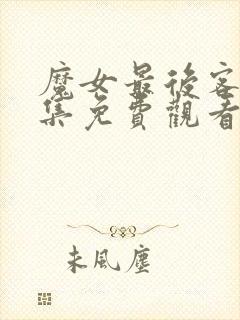 魔女最後客
集免費觀看
未風塵